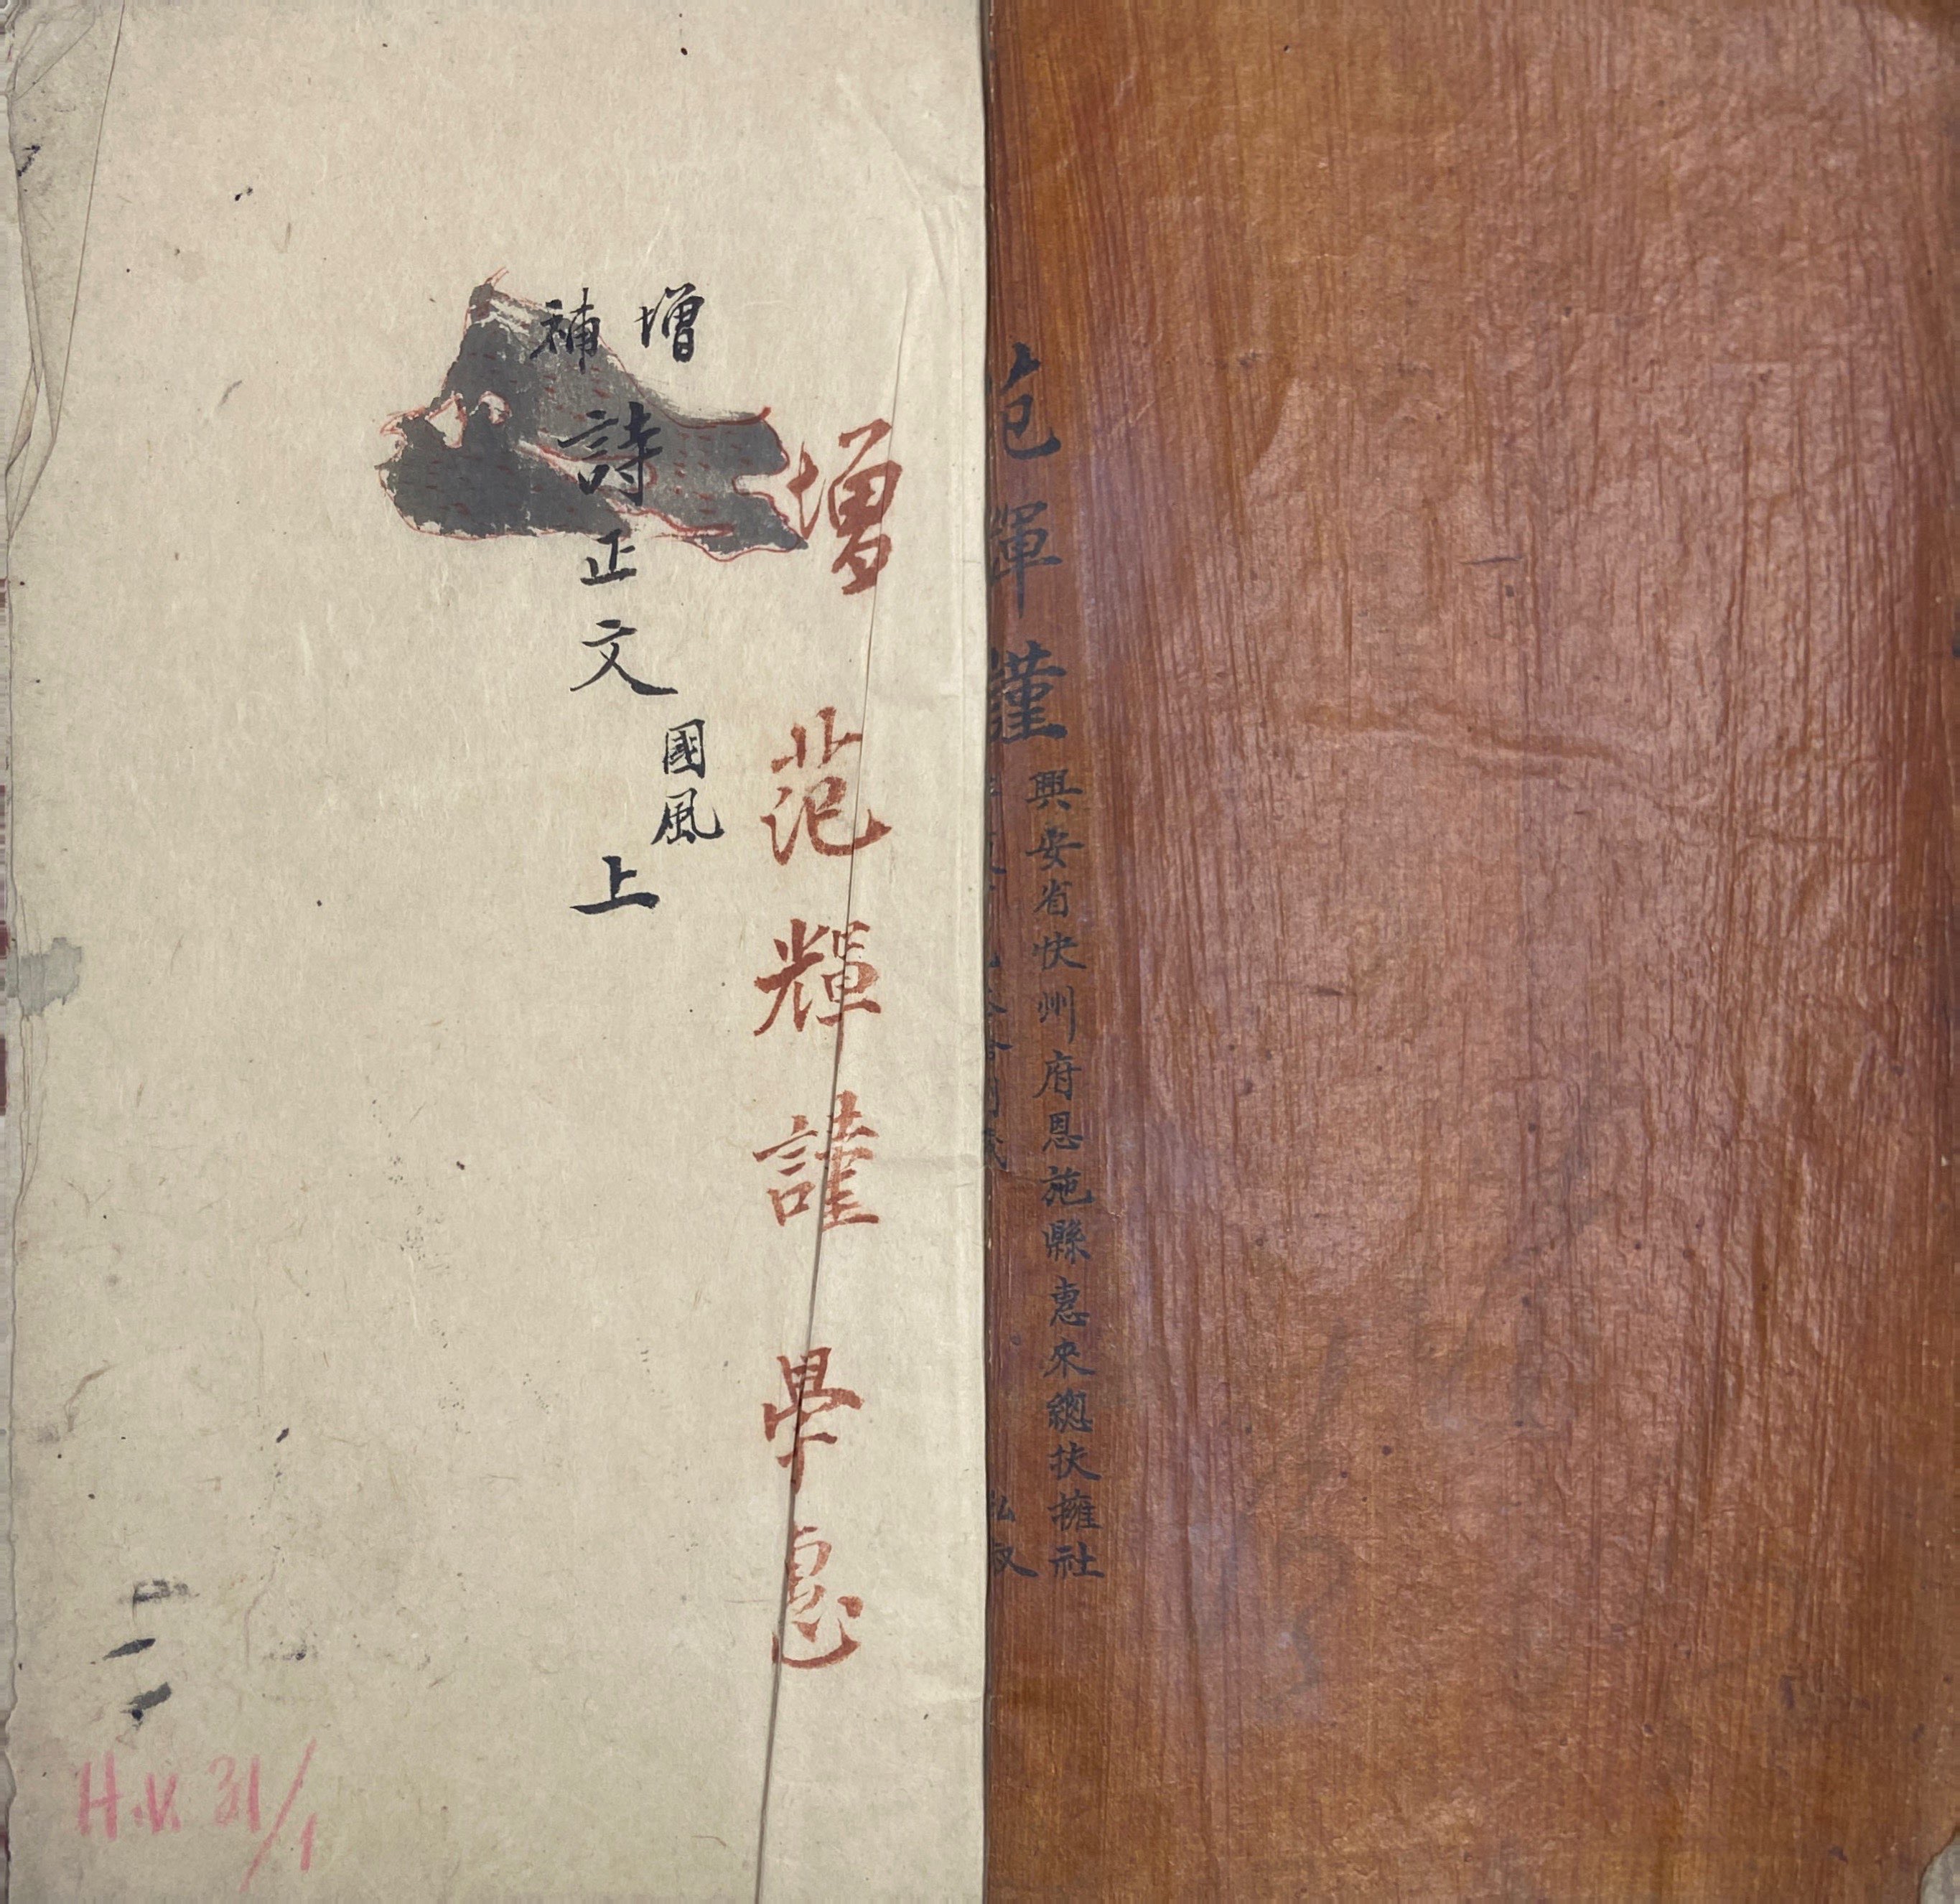 輝謹
興安省快州府恩施縣惠來總扶擁社
增
范輝謹
學惠
增補
詩正文
國風
上
H.V. 31/1